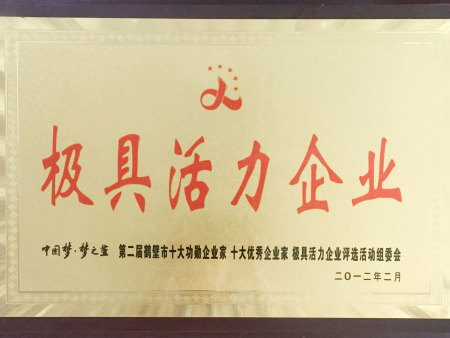 极具活力企业
中国梦·梦之蓝 第二届鹤壁市十大功勋企业家 十大优秀企业家 极具活力企业评选活动组委会
二〇一二年二月